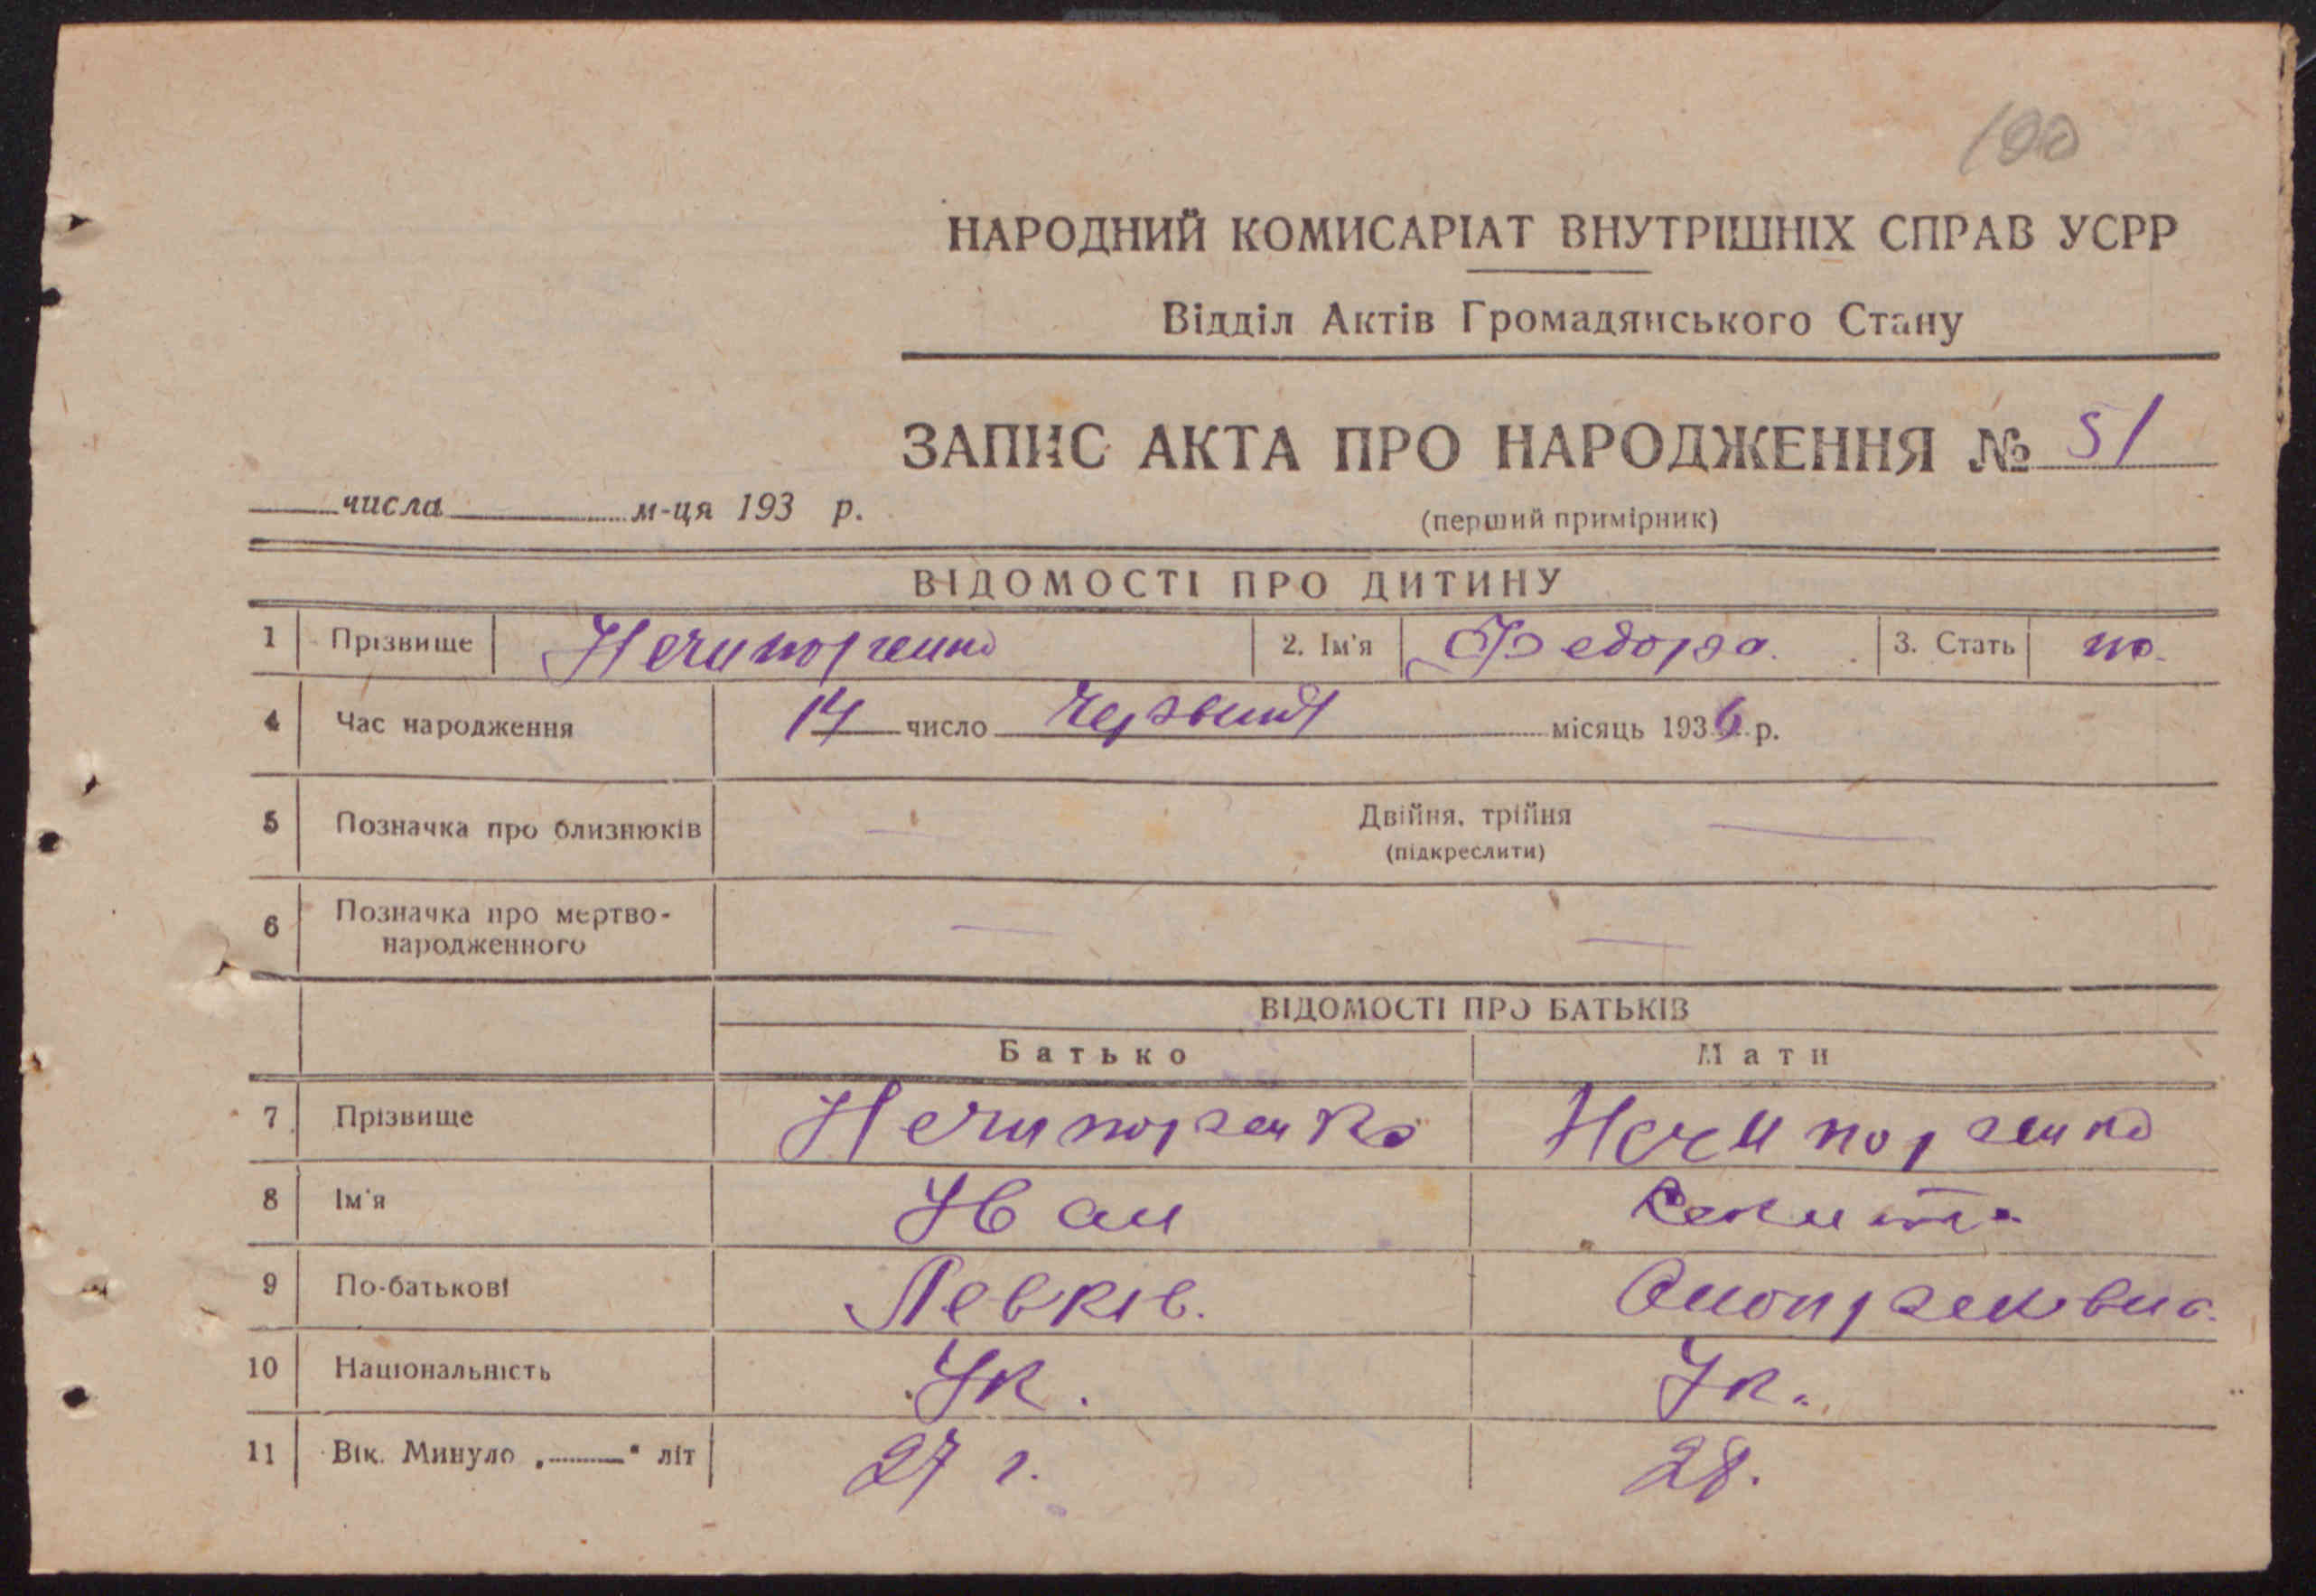 100
НАРОДНИЙ КОМИСАРІАТ ВНУТРІШНІХ СПРАВ УСРР
Відділ Актів Громадянського Стану
ЗАПИС АКТА ПРО НАРОДЖЕННЯ № 51
числа м-ця 193 р.
(перший примірник)
ВІДОМОСТІ ПРО ДИТИНУ
1 Прізвище Нечипоренко 2. Ім'я Федора. 3. Стать
4 Час народження 14 число червня місяць 1936 р.
5 Позначка про близнюків Двійня, трійня
(підкреслити)
6 Позначка про мертво-
народженного
ВІДОМОСТІ ПРО БАТЬКІВ
Батько Мати
7 Прізвище Нечипоренко Нечипоренко
8 Ім'я Иван
9 По-батькові Левків.
10 Національність Ук. Ук.
11 Вік. Минуло „ " літ 27 г. 28.